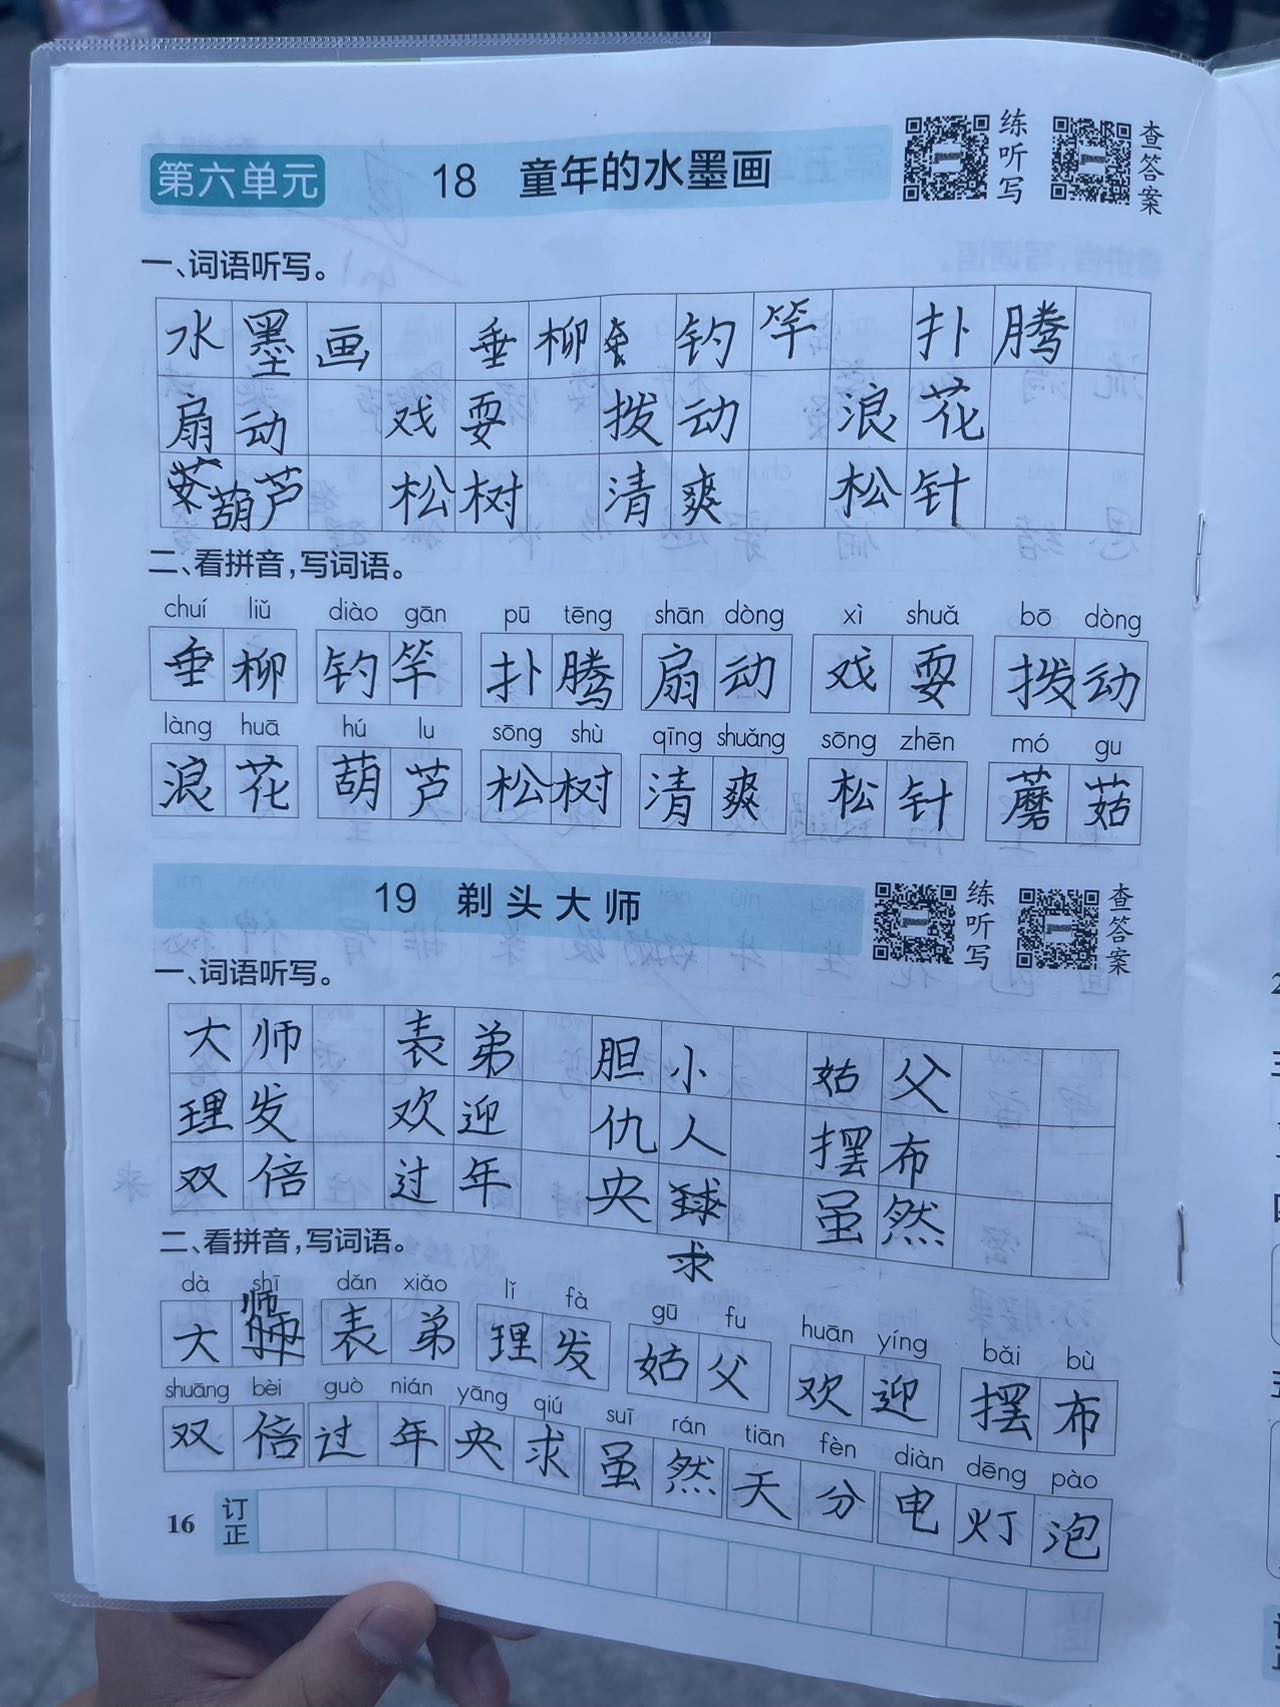 第六单元 18 童年的水墨画 练听写 查答案
一、词语听写。
水墨画 垂柳 钓竿 扑腾
扇动 戏耍 拨动 浪花
葫芦 松树 清爽 松针
二、看拼音，写词语。
chuí liǔ diào gān pū tēng shān dòng xì shuǎ bō dòng
垂柳 钓竿 扑腾 扇动 戏耍 拨动
làng huā hú lu sōng shù qīng shuǎng sōng zhēn mó gu
浪花 葫芦 松树 清爽 松针 蘑菇
19 剃头大师 练听写 查答案
一、词语听写。
大师 表弟 胆小 姑父
理发 欢迎 仇人 摆布
双倍 过年 央求 虽然
二、看拼音，写词语。
dà shī dǎn xiǎo lǐ fà gū fu huān yíng bǎi bù
大师 表弟 理发 姑父 欢迎 摆布
shuāng bèi guò nián yāng qiú suī rán tiān fèn diàn dēng pào
双倍 过年 央求 虽然 天分 电灯泡
16 订正